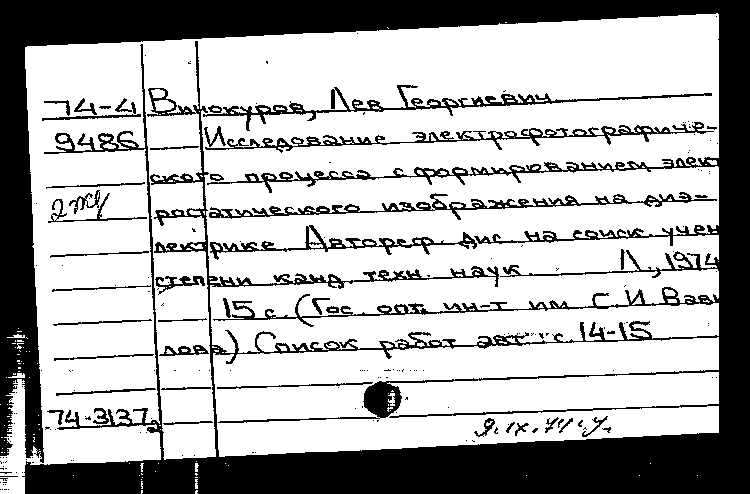 74-4 Винокуров, Лев Георгиевич
9486 Исследование электрофотографиче-
ского процесса с формированием элект
2 ростатического изображения на диэ-
лектрике. Автореф. дис. на соиск. учен
степени канд. техн. наук. Л., 1974
15 с. (Гос. опт. ин-т им С. И. Вави
лова). Список работ авт.: с. 14-15
74-3137